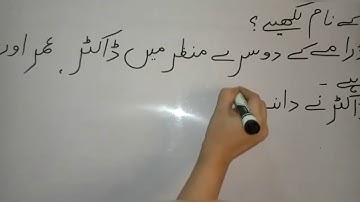 کے نام لکھیے؟
ڈرامے کے دوسرے منظر میں ڈاکٹر، عمر اور
ہے۔
ڈاکٹر نے